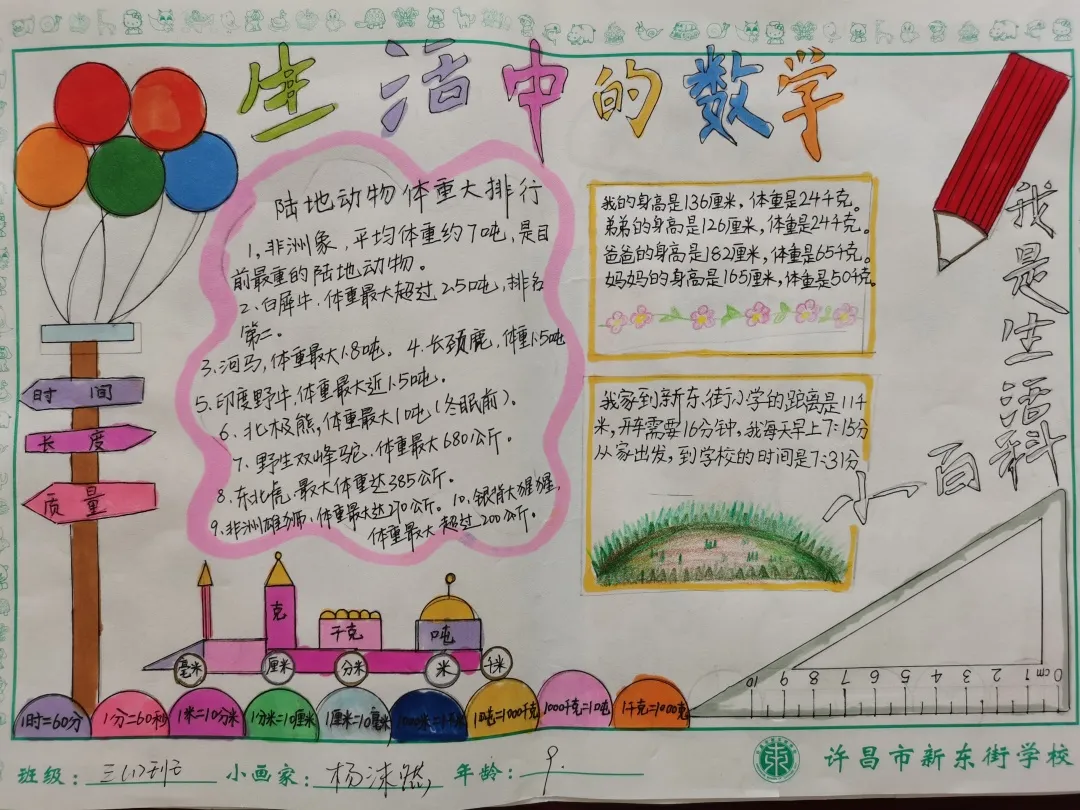 生活中的数学
陆地动物体重大排行
1，非洲象，平均体重约7吨，是目
前最重的陆地动物。
2、白犀牛，体重最大超过2.5吨，排名
第二。
3、河马，体重最大1.8吨。 4、长颈鹿，体重1.5吨
5、印度野牛，体重最大近1.5吨。
6、北极熊，体重最大1吨（冬眠前）。
7、野生双峰驼，体重最大680公斤。
8、东北虎，最大体重达385公斤。
9、非洲雄狮，体重最大达270公斤。 10、银背大猩猩，
体重最大超过200公斤。
我的身高是136厘米，体重是24千克。
弟弟的身高是126厘米，体重是24千克。
爸爸的身高是182厘米，体重是65千克。
妈妈的身高是165厘米，体重是50千克。
我家到新东街小学的距离是11千
米，开车需要16分钟，我每天早上7:15分
从家出发，到学校的时间是7:31分
我是生活科
小百
时间
长度
质量
克
千克
吨
毫米
厘米
分米
米
千米
1时=60分
1分=60秒
1米=10分米
1分米=10厘米
1厘米=10毫米
1000米=1千米
1吨=1000千克
1000千克=1吨
1千克=1000克
10 9 8 7 6 5 4 3 2 1cm 0
班级：三(1)班 小画家：杨沫 年龄：9.
许昌市新东街学校